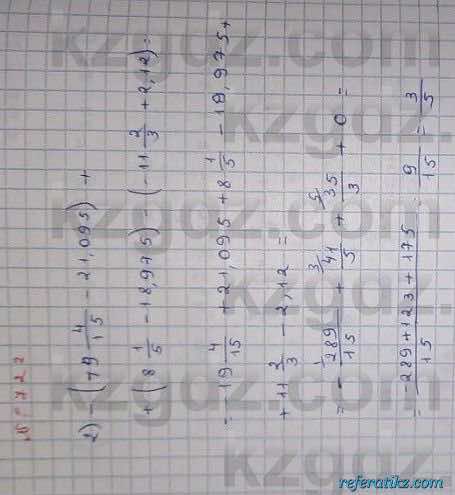 №722
2) -(19 4/15 - 21,095) +
+ (8 1/5 - 18,975) - (-11 2/3 + 2,12) =
= -19 4/15 + 21,095 + 8 1/5 - 18,975 +
+ 11 2/3 - 2,12 =
= - 289/15 + 41/5 + 35/3 + 0 =
= -289+123+175/15 = 9/15 = 3/5
kzgdz.
referatikz.com